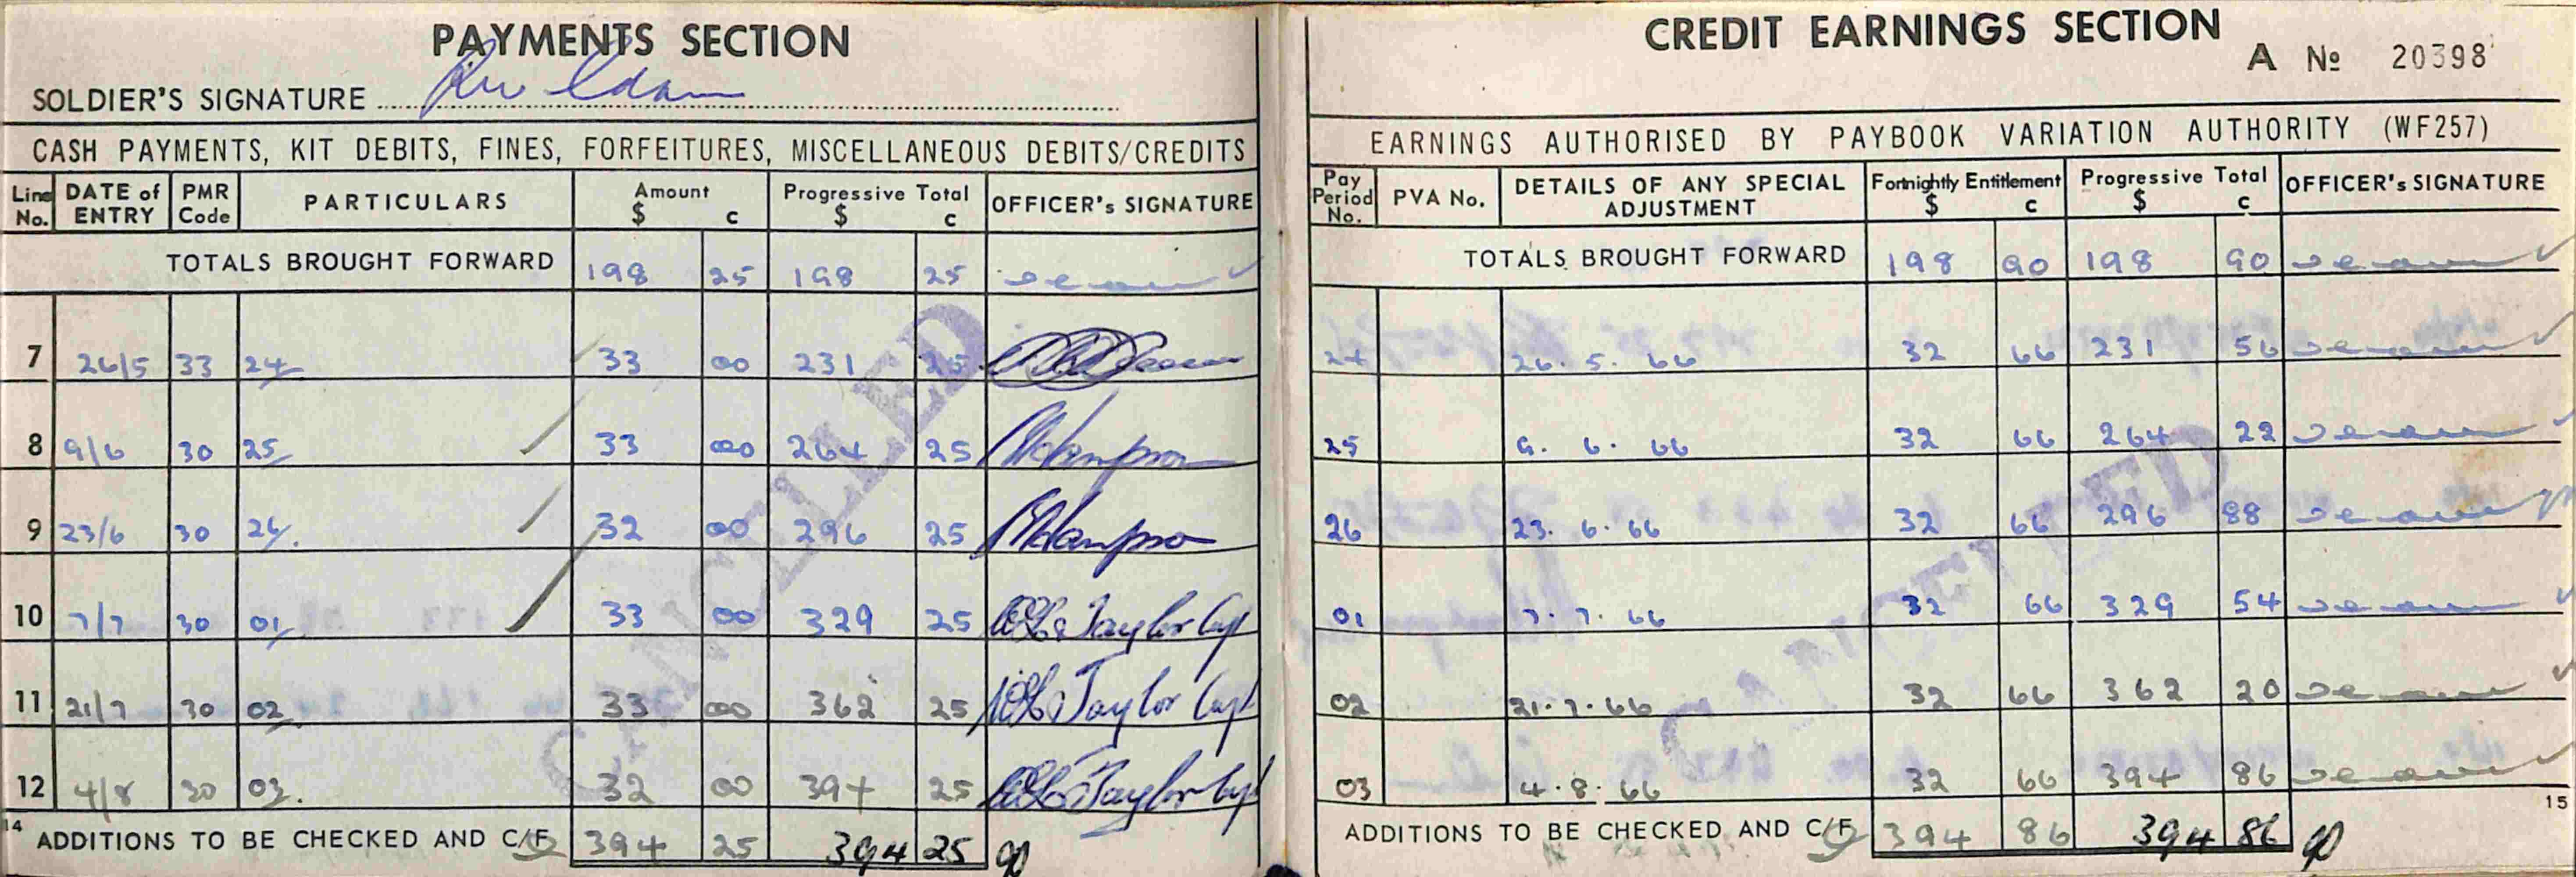 PAYMENTS SECTION
SOLDIER'S SIGNATURE
CASH PAYMENTS, KIT DEBITS, FINES, FORFEITURES, MISCELLANEOUS DEBITS/CREDITS
Line No. DATE of ENTRY PMR Code PARTICULARS Amount $ c Progressive Total $ c OFFICER's SIGNATURE
TOTALS BROUGHT FORWARD 198 25 198 25
7 26/5 33 24 33 00 231 25
8 9/6 30 25 33 00 264 25
9 23/6 30 26. 32 00 296 25
10 7/7 30 01 33 00 329 25 Taylor Capt
11 21/7 30 02 33 00 362 25 Taylor Capt
12 4/8 30 03. 32 00 394 25 Taylor Capt
CANCELLED
14 ADDITIONS TO BE CHECKED AND C/F 394 25 394 25
CREDIT EARNINGS SECTION
A № 20398
EARNINGS AUTHORISED BY PAYBOOK VARIATION AUTHORITY (WF257)
Pay Period No. PVA No. DETAILS OF ANY SPECIAL ADJUSTMENT Fortnightly Entitlement $ c Progressive Total $ c OFFICER's SIGNATURE
TOTALS BROUGHT FORWARD 198 90 198 90
24 26.5.66 32 66 231 56
25 9.6.66 32 66 264 22
26 23.6.66 32 66 296 88
01 7.7.66 32 66 329 54
02 21.7.66 32 66 362 20
03 4.8.66 32 66 394 86
CANCELLED
ADDITIONS TO BE CHECKED AND C/F 394 86 394 86
15